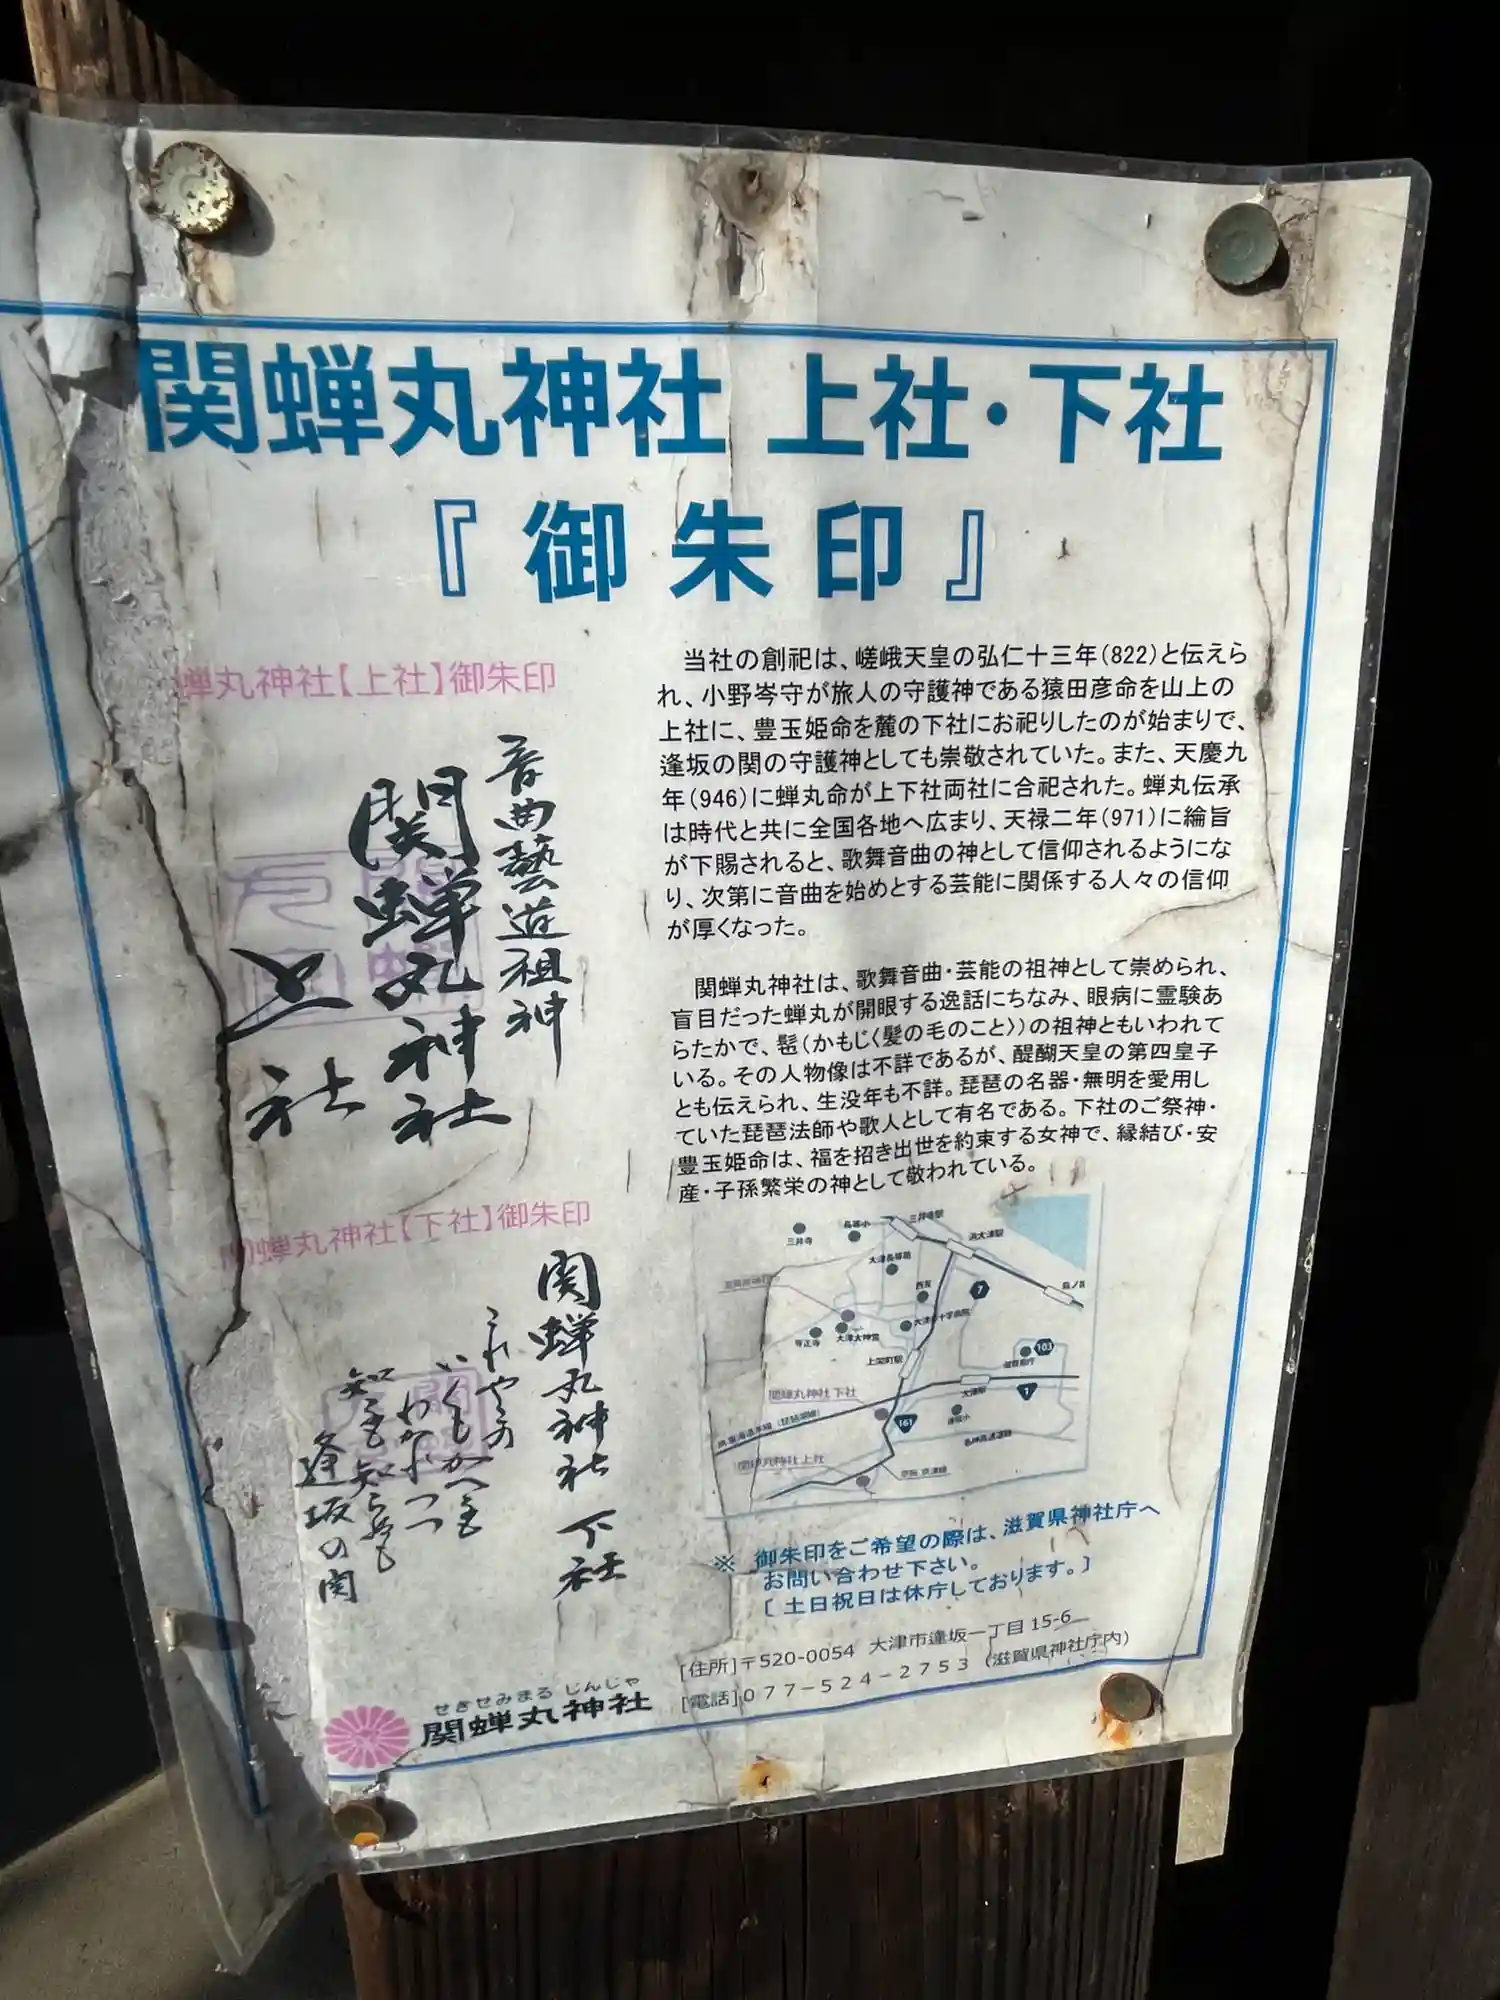 関蝉丸神社 上社・下社
『御朱印』
蝉丸神社【上社】御朱印
音曲藝道祖神
関蝉丸神社
上社
関蝉丸神社【下社】御朱印
関蝉丸神社 下社
これやこの
いくもかへるも
わかれつつ
知るも知らぬも
逢坂の関
当社の創祀は、嵯峨天皇の弘仁十三年(822)と伝えら
れ、小野岑守が旅人の守護神である猿田彦命を山上の
上社に、豊玉姫命を麓の下社にお祀りしたのが始まりで、
逢坂の関の守護神としても崇敬されていた。また、天慶九
年(946)に蝉丸命が上下社両社に合祀された。蝉丸伝承
は時代と共に全国各地へ広まり、天禄二年(971)に綸旨
が下賜されると、歌舞音曲の神として信仰されるようにな
り、次第に音曲を始めとする芸能に関係する人々の信仰
が厚くなった。
関蝉丸神社は、歌舞音曲・芸能の祖神として崇められ、
盲目だった蝉丸が開眼する逸話にちなみ、眼病に霊験あ
らたかで、髢(かもじ〈髪の毛のこと〉)の祖神ともいわれて
いる。その人物像は不詳であるが、醍醐天皇の第四皇子
とも伝えられ、生没年も不詳。琵琶の名器・無明を愛用し
ていた琵琶法師や歌人として有名である。下社のご祭神・
豊玉姫命は、福を招き出世を約束する女神で、縁結び・安
産・子孫繁栄の神として敬われている。
三井寺
長等小
三井寺駅
浜大津駅
7
上栄町駅
103
大津駅
1
関蝉丸神社 下社
161
関蝉丸神社 上社
名神高速道路
京阪 京津線
※ 御朱印をご希望の際は、滋賀県神社庁へ
お問い合わせ下さい。
[ 土日祝日は休庁しております。]
[住所]〒520-0054 大津市逢坂一丁目 15-6
[電話]077-524-2753 (滋賀県神社庁内)
せきせみまる じんじゃ
関蝉丸神社